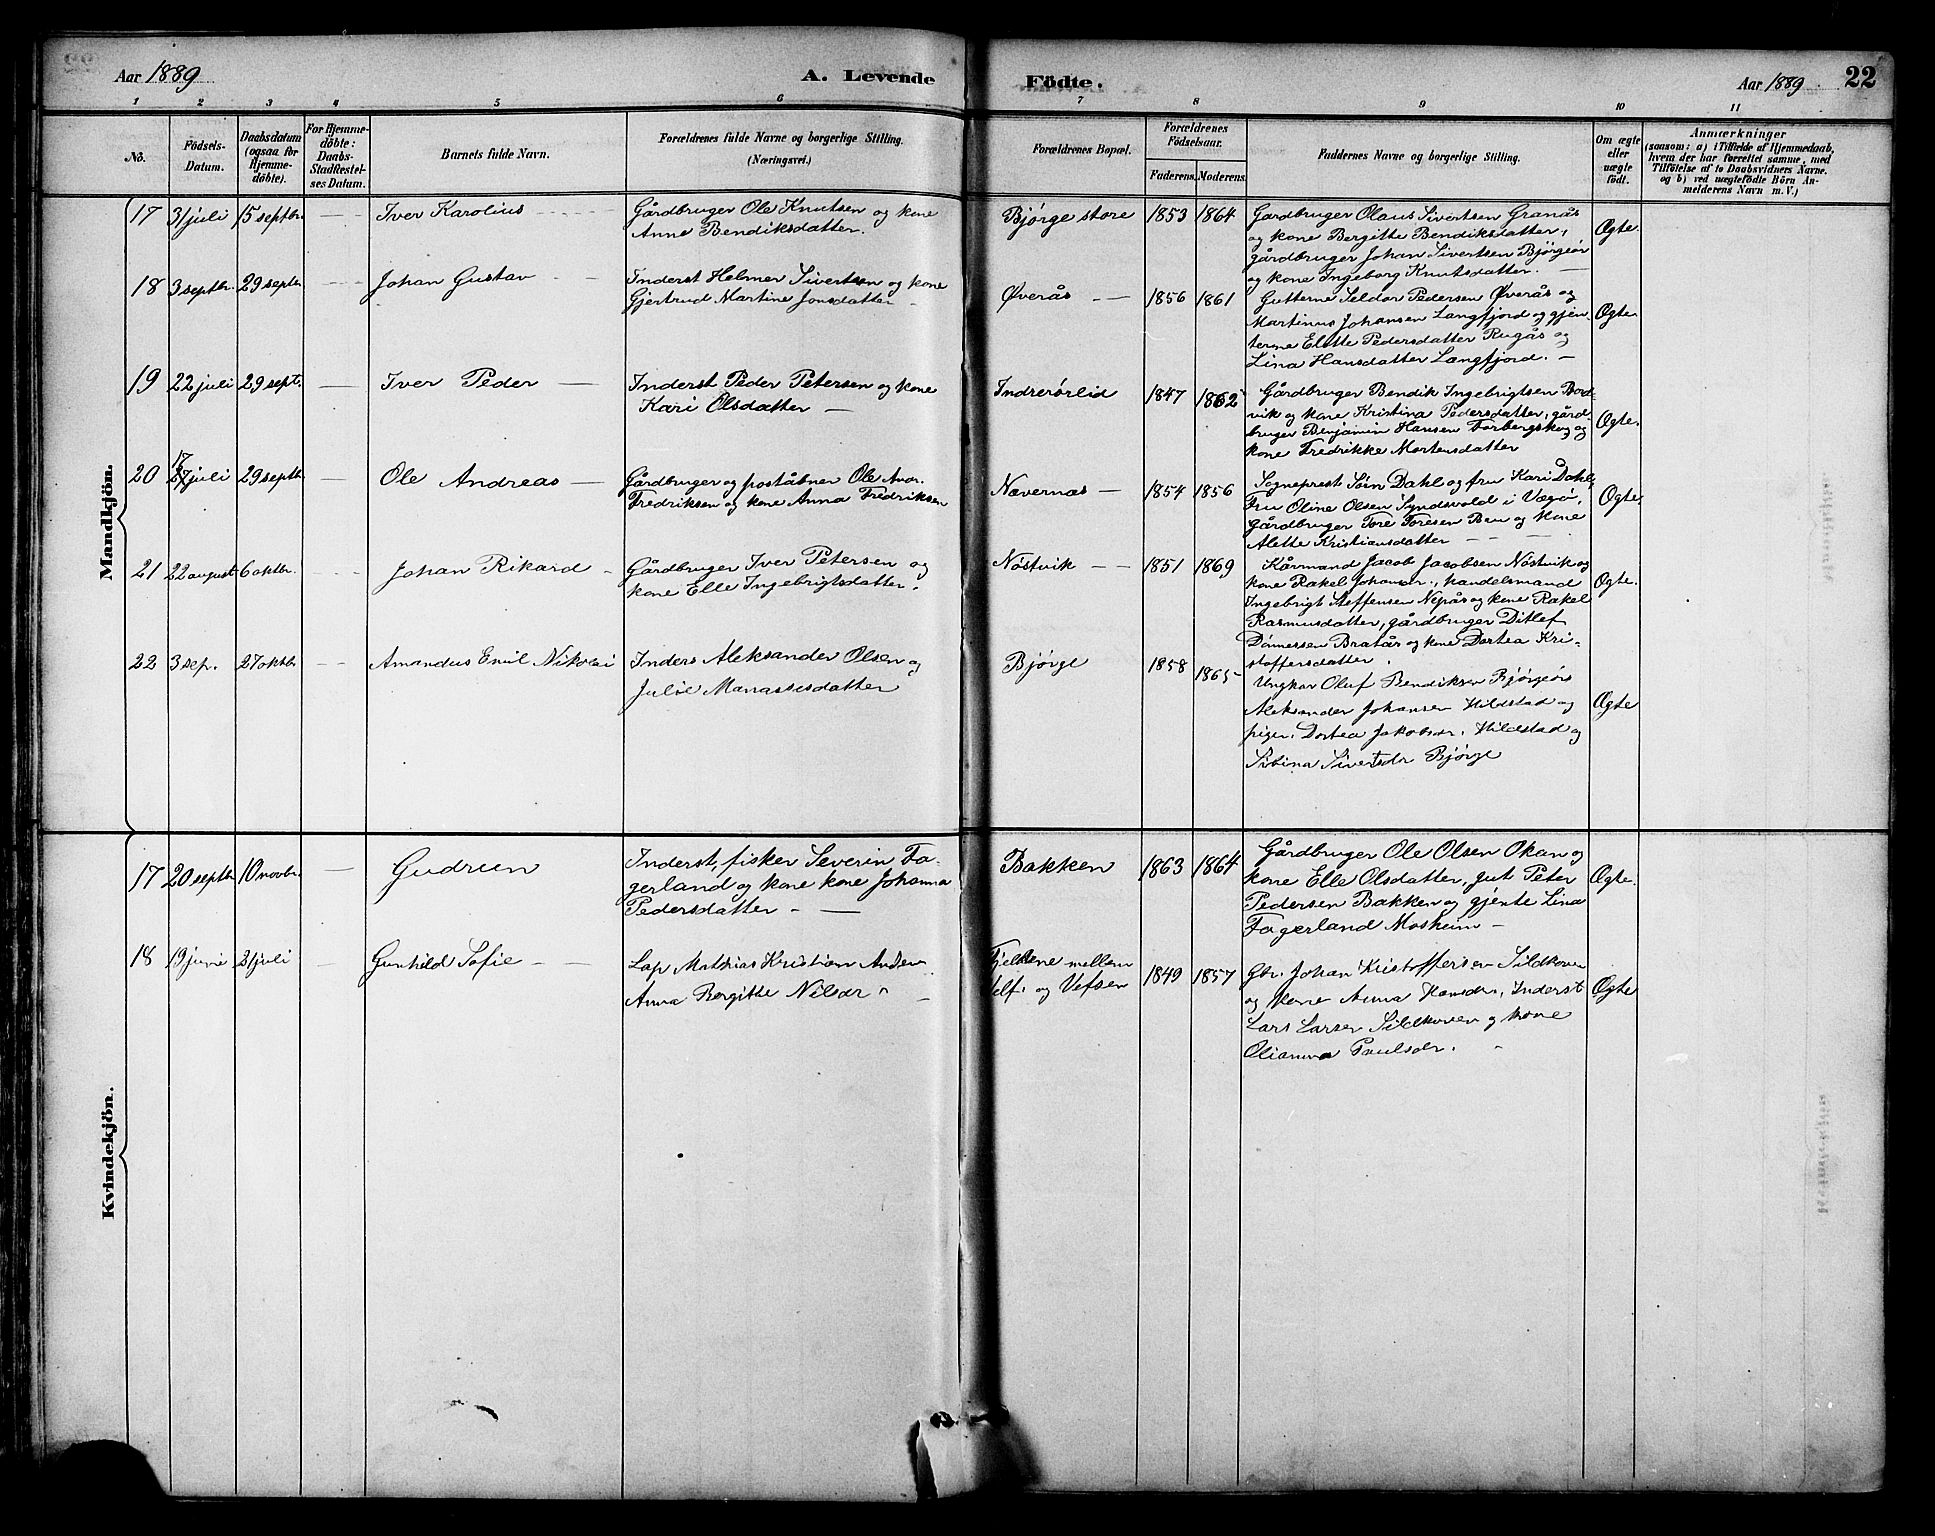 Aar 1889
A. Levende
Födte.
Aar 1889
22
1 2 3 4 5 6 7 8 9 10 11
No.
Födsels-
Datum.
Daabsdatum
(ogsaa for
Hjemme-
döbte).
For Hjemme-
döbte:
Daabs-
Stadfæstel-
ses Datum.
Barnets fulde Navn.
Forældrenes fulde Navne og borgerlige Stilling.
(Næringsvei.)
Forældrenes Bopæl.
Forældrenes
Födselsaar.
Faderens. Moderens.
Faddernes Navne og borgerlige Stilling.
Om ægte
eller
uægte
födt.
Anmærkninger
(saasom: a) i Tilfælde af Hjemmedaab,
hvem der har forrettet samme, med
Tilföielse af to Daabsvidners Navne.
og b) ved uægtefödte Börn An-
melderens Navn m. V.)
Mandkjön.
17 31 juli 15 septbr. — Iver Karolius
Gårdbruger Ole Knutsen og kone
Anne Bendiksdatter.
Bjørge store 1853 1864
Gårdbruger Olaus Sivertsen Granås
og kone Bergitte Bendiksdatter,
gårdbruger Johan Sivertsen Bjørgeör
og kone Ingeborg Knutsdatter. —
Ægte.
18 3 septbr. 29 septbr. — Johan Gustav
Inderst Helmer Sivertsen og kone
Gjertrud Martine Jonsdatter —
Øverås — 1856 1861
Gutterne Seldor Pedersen Øverås og
Martinus Johansen Langfjord og gjen-
terne Elette Pedersdatter Rugås og
Lina Hansdatter Langfjord. —
Ægte.
19 22 juli 29 sept. — Iver Peder —
Inderst Peder Petersen og kone
Kari Olsdatter —
Indrerörlid 1847 1862
Gårdbruger Bendik Ingebrigtsen Bord-
vik og kone Kristina Pedersdatter, gård-
bruger Benjamin Hansen Forbergskog og
kone Fredrikke Mortensdatter
Ægte.
17
20 27 juli 29 septbr. — Ole Andreas —
Gårdbruger og poståbner Ole Andr.
Fredriksen og kone Anna Fredriksen
Nævernæs — 1854 1856
Sogneprest Søin Dahl og fru Kari Dahl,
Fru Oline Olsen i Vægø,
Gårdbruger Tore Toresen og kone
Alette Kristiansdatter — — —
Ægte.
21 22 august 6 oktbr. — Johan Rikard —
Gårdbruger Iver Petersen og
kone Elle Ingebrigtsdatter.
Nöstvik — 1851 1869
Kårmand Jacob Jacobsen Nöstvik og
kone Rakel Johansdr., handelsmand
Ingebrigt Steffensen Nepås og kone Rakel
Rasmusdatter, gårdbruger Ditlef
Dönnessen Bratås og kone Dortea Kri-
stoffersdatter.
Ægte.
22 3 sep. 27 oktbr — Amandus Emil Nikolai
Inders Aleksander Olsen og
Julie Manassesdatter
Bjørge 1858 1865
Ungkar Oluf Bendiksen Bjørgeör
Aleksander Johansen Hildstad og
piger. Dortea Jakobsdr. Hildstad og
Sibina Sivertsdr Bjørge
Ægte
Kvindekjön.
17 20 septbr 10 novbr. — Gudrun
Inderst, fisker Severin Fa-
gerland og kone kone Johanna
Pedersdatter — —
Bakken 1863 1864
Gårdbruger Ole Olsen Okan og
kone Elle Olsdatter, gut Peter
Pedersen Bakken og gjente Lina
Fagerland Mosheim —
Ægte.
18 19 juni 21 juli Gunhild Sofie — —
Lap Mathias Kristian Anders
Anna Bergitte Nilsdr —
Fjeldene mellem
Velf. og Vefsen 1849 1857
Gbr. Johan Kristoffersen Sildkoven
og kone Anna Hansdr, Inderst
Lars Larsen Sildkoven og kone
Olianna Paulsdr.
Ægte